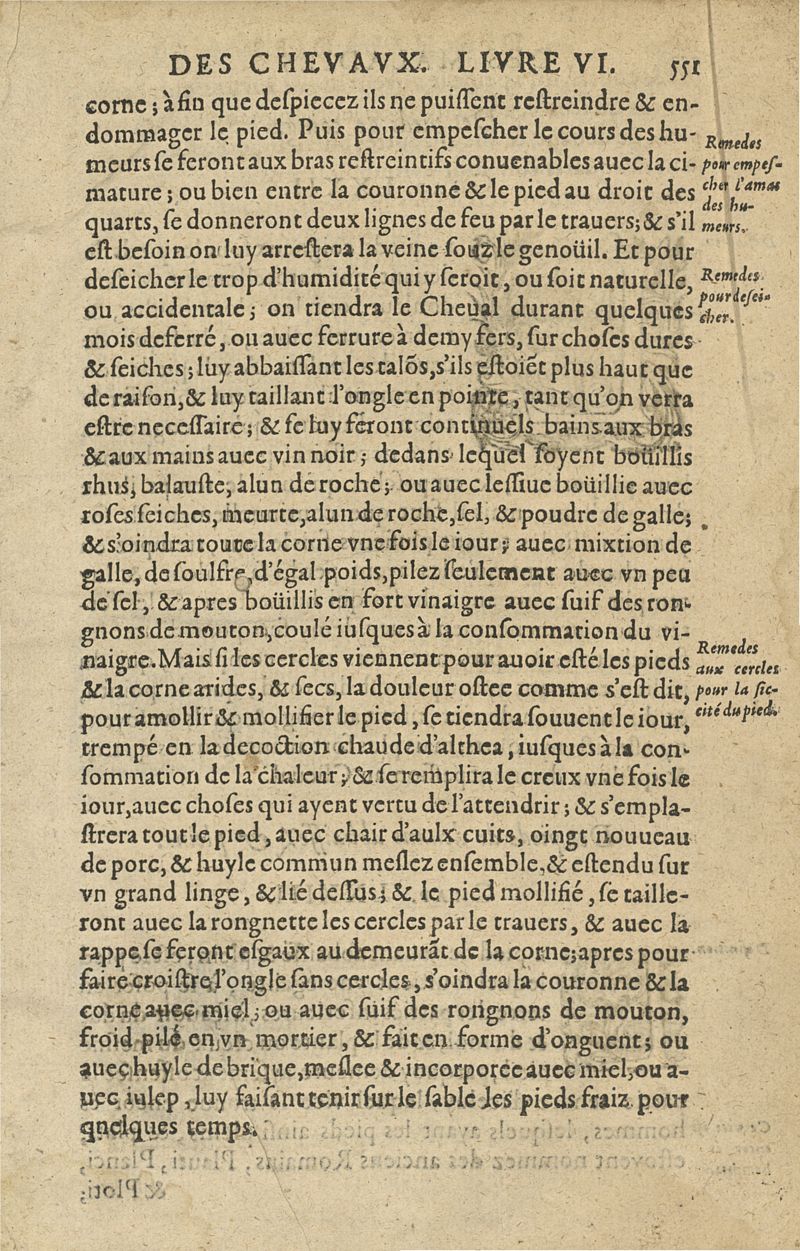 DES CHEVAVX. LIVRE VI. 551
corne; à fin que despiecez ils ne puissent restreindre & en-
dommager le pied. Puis pour empescher le cours des hu-
meurs se feront aux bras restreintifs conuenables auec la ci-
mature; ou bien entre la couronne & le pied au droit des
quarts, se donneront deux lignes de feu par le trauers; & s'il
est besoin on luy arrestera la veine souz le genoüil. Et pour
deseicher le trop d'humidité qui y seroit, ou soit naturelle,
ou accidentale; on tiendra le Cheual durant quelques
mois deferré, ou auec ferrure à demy fers, sur choses dures
& seiches; luy abbaissant les talõs, s'ils estoiẽt plus haut que
de raison, & luy taillant l'ongle en pointe, tant qu'on verra
estre necessaire; & se luy feront continuels bains aux bras
& aux mains auec vin noir; dedans lequel soyent boüillis
rhus, balauste, alun de roche; ou auec lessiue boüillie auec
roses seiches, meurte, alun de roche, sel, & poudre de galle;
& s'oindra toute la corne vne fois le iour; auec mixtion de
galle, de soulfre, d'égal poids, pilez seulement auec vn peu
de sel, & apres boüillis en fort vinaigre auec suif des ron-
gnons de mouton, coulé iusques à la consommation du vi-
naigre. Mais si les cercles viennent pour auoir esté les pieds
& la corne arides, & secs, la douleur ostee comme s'est dit,
pour amollir & mollifier le pied, se tiendra souuent le iour,
trempé en la decoction chaude d'althea, iusques à la con-
sommation de la chaleur; & se remplira le creux vne fois le
iour, auec choses qui ayent vertu de l'attendrir; & s'empla-
strera tout le pied, auec chair d'aulx cuits, oingt nouueau
de porc, & huyle commun meslez ensemble, & estendu sur
vn grand linge, & lié dessus; & le pied mollifié, se taille-
ront auec la rongnette les cercles par le trauers, & auec la
rappe se feront esgaux au demeurãt de la corne; apres pour
faire croistre l'ongle sans cercles, s'oindra la couronne & la
corne auec miel; ou auec suif des rongnons de mouton,
froid pilé en vn mortier, & fait en forme d'onguent; ou
auec huyle de brique, meslee & incorporee auec miel, ou a-
uec iulep, luy faisant tenir sur le sable les pieds fraiz pour
quelques temps.
Remedes
pour empes-
cher l'amas
des hu-
meurs.
Remedes
pour desei-
cher.
Remedes
aux cercles
pour la sic-
cité du pied.